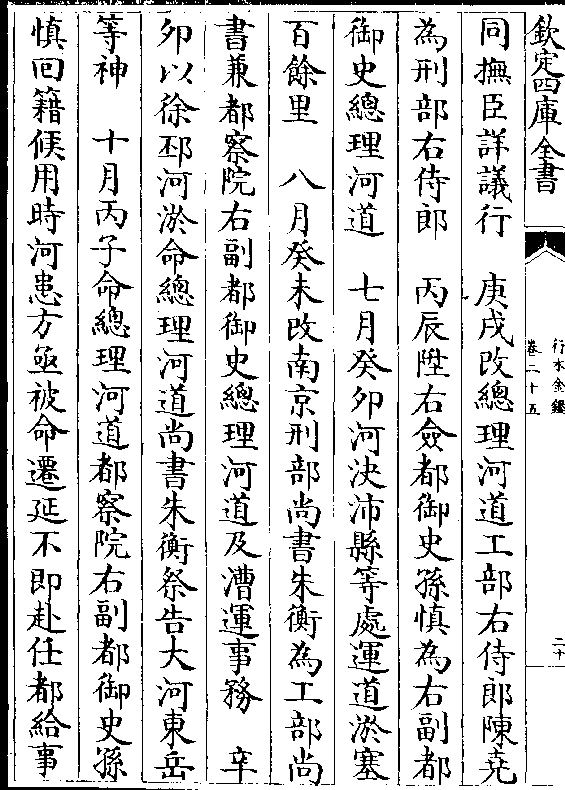 欽定四庫全書
行水金鑑
卷二十五
二十
同撫臣詳議行　庚戌改總理河道工部右侍郎陳堯
為刑部右侍郎　丙辰陞右僉都御史孫慎為右副都
御史總理河道　七月癸卯河決沛縣等處運道淤塞
百餘里　八月癸未改南京刑部尚書朱衡為工部尚
書兼都察院右副都御史總理河道及漕運事務　辛
夘以徐邳河淤命總理河道尚書朱衡祭告大河東岳
等神　十月丙子命總理河道都察院右副都御史孫
慎回籍候用時河患方亟被命遷延不即赴任都給事